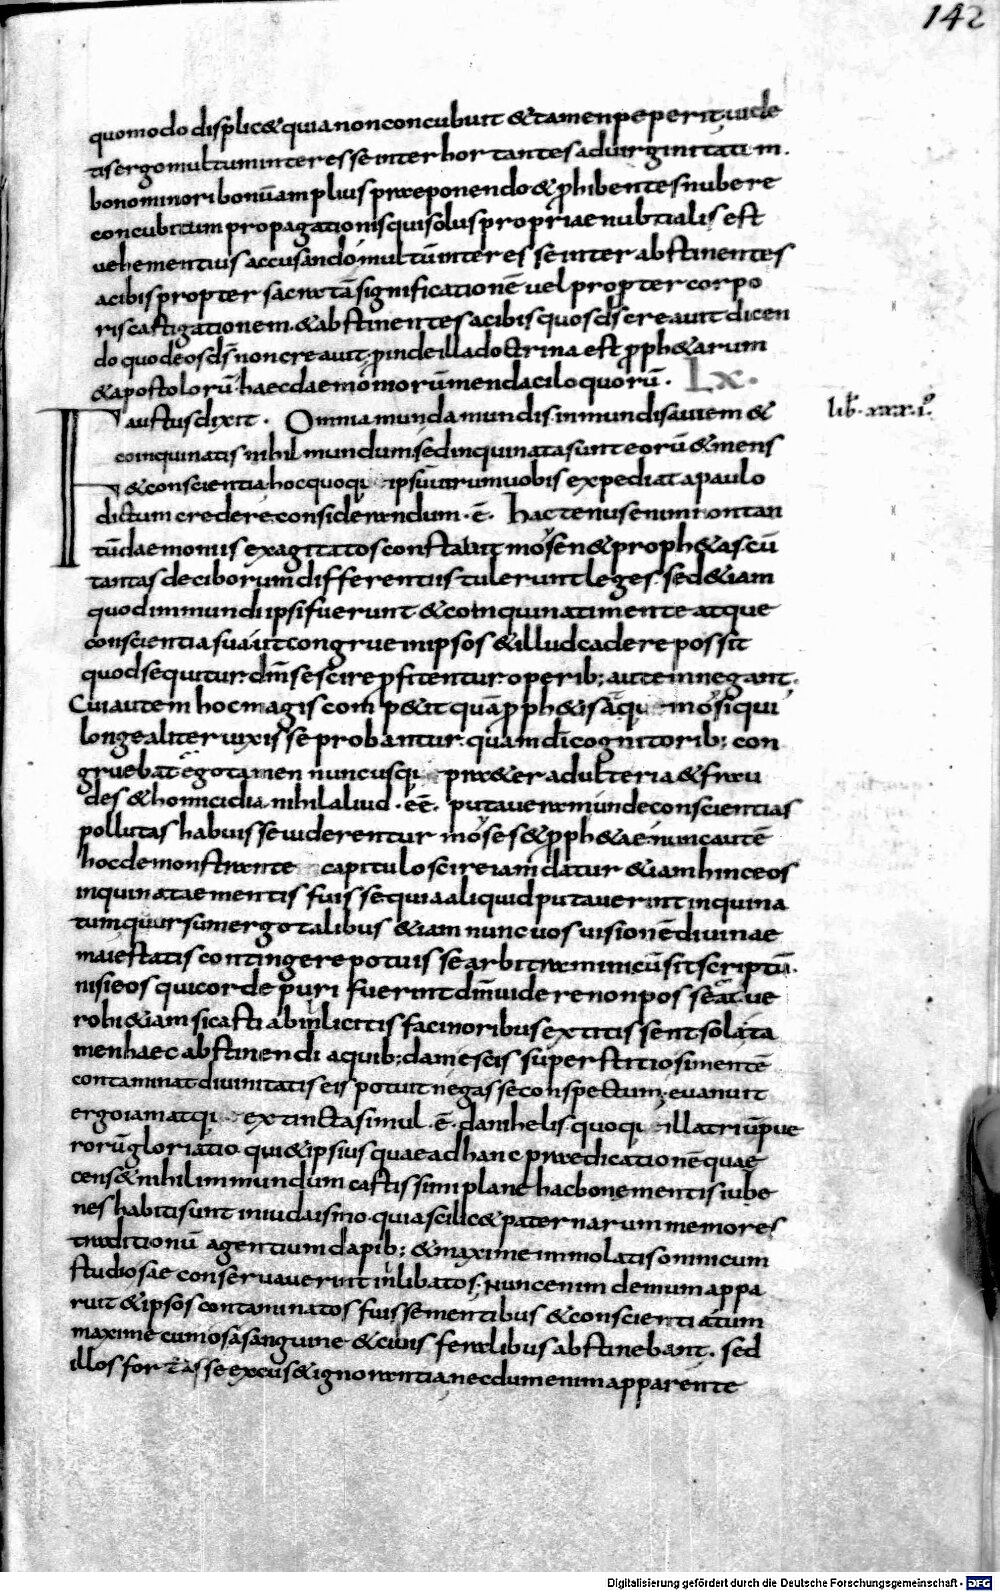 142
quomodo displic& quia non concubuit & tamen peperit; uide
tis ergo multum interesse inter hortantes ad uirginitatem.
bono minori bonū amplius praeponendo & ꝓhibentes nubere
concubitum propagationis qui solus propriae nubtialis est
uehementius accusando; multū interesse inter abstinentes
a cibis propter sacratā significationē uel propter corpo
ris castigationem. & abstinentes a cibis quos ds̄ creauit dicen
do quod eos ds̄ non creauit; ꝓinde illa doctrina est ꝓph&arum
& apostolorū. haec daemoniorū mendaciloquorū. LX.
Faustus dixit. Omnia munda mundis inmundis autem &
lib̄. xxx.i.º
coinquinatis nihil mundum sed inquinata sunt eorū & mens
& conscientia hoc quoqi ipsū utrum uobis expediat a paulo
dictum credere considerandum. ē. hactenus enim non tan
tū daemoniis exagitatos constabit moysen & proph&as cū
tantas de ciborum differentiis tulerunt leges. sed &iam
quod inmundi ipsi fuerunt & coinquinati mente atque
conscientia sua ut congrue in ipsos & illud cadere possit
quod sequitur. dm̄ se scire ꝓfitentur. operib; autem negant.
Cui autem hoc magis comp&it quā ꝓph&is atqu moysi qui
longe aliter uixisse probantur. quam dī cognitorib; con
gruebat ego tamen nunc usqi pra&er adulteria & frau
des & homicidia nihil aliud. ēē. putaueram unde conscientias
pollutas habuisse uiderentur moyses & ꝓph&ae. nunc autē
hoc demonstrante capitulo scire iam datur &iam hinc eos
inquinatae mentis fuisse quia aliquid putauerint inquina
tum quur sum ergo talibus &iam nunc uos uisionē diuinae
maiestatis contingere potuisse arbitramini cū sit scriptū.
nisi eos qui corde puri fuerint dm̄ uidere non posse at ue
ro hi &iam si casti ab inlicitis facinoribus extitissent sola ta
men haec abstinendi a quib;dam escis superstitiosi mentē
contaminat diuinitatis eis potuit negasse conspectum; euanuit
ergo iam atqi extincta simul. ē. danihelis quoqi illa triū pue
rorū gloriatio. qui & ipsius quae ad hanc praedicationē quae
cens& nihil inmundum castissimi plane hac bone mentis iube
nes habiti sunt in iudaismo. quia scilic& paternarum memores
traditionū agentium dapib; & maxime immolatis omni cum
studio sae conseruauerint inlibatos; Nunc enim demum appa
ruit & ipsos contaminatos fuisse mentibus & conscientia tum
maxime cum osa sanguine & ciuis feralibus abstinebant. sed
illos fortasse excus& ignorantia necdum enim apparente
Digitalisierung gefördert durch die Deutsche Forschungsgemeinschaft - DFG